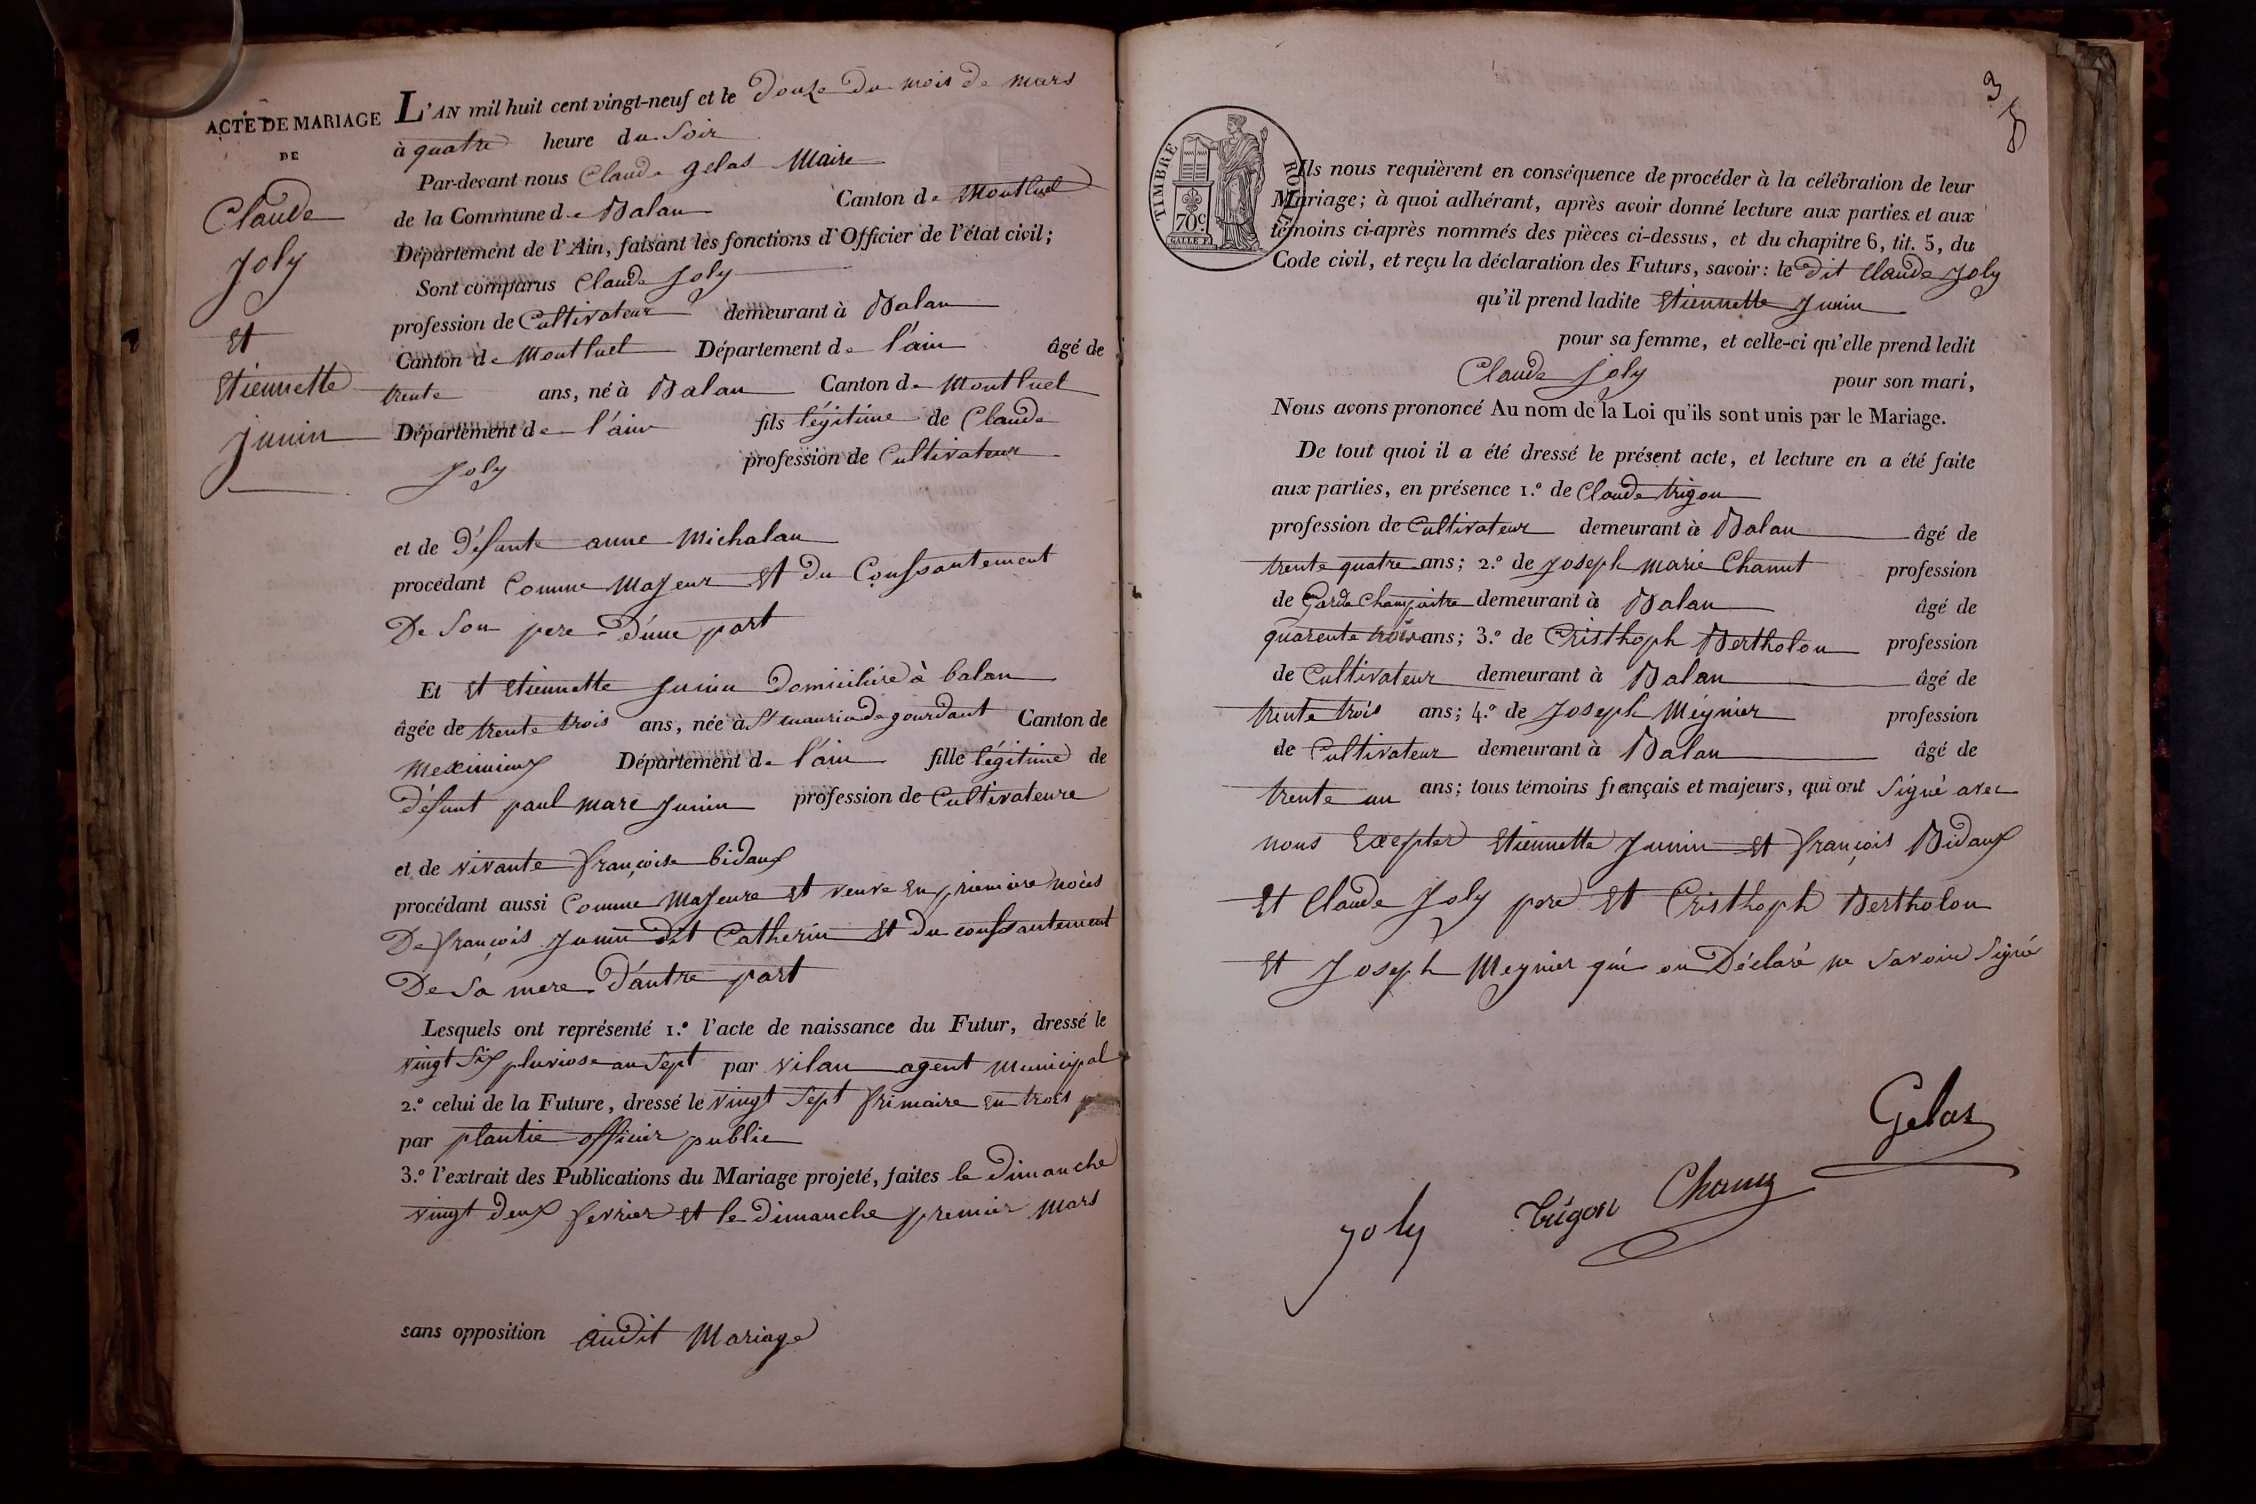 ACTE DE MARIAGE
DE
Claude
Joly
et
Etiennette
Junin
L'AN mil huit cent vingt-neuf et le Douze Du mois de mars
à quatre heure du Soir
Par-devant nous Claude gelas Maire
de la Commune de Balan Canton de Montluel
Département de l'Ain, faisant les fonctions d'Officier de l'état civil;
Sont comparus Claude Joly
profession de Cultivateur demeurant à Balan
Canton de Montluel Département de l'ain âgé de
trente ans, né à Balan Canton de Montluel
Département de l'ain fils légitime de Claude
Joly profession de Cultivateur
et de Défunte anne Michalan
procédant Comme Majeur Et du Conssantement
De Son pere d'une part
Et Et Etiennette Junin Domiciliée à balan
âgée de trente trois ans, née à St mauris de gourdant Canton de
Meximieux Département de l'ain fille légitime de
Défunt paul marc Junin profession de Cultivateure
et de vivante françoise bidaux
procédant aussi Comme Majeure et veuve En priemiere noces
De françois Junin dit Catherin Et du conssantement
De Sa mere D'autre part
Lesquels ont représenté 1.º l'acte de naissance du Futur, dressé le
vingt Six pluviose an Sept par vilan agent Municipal
2.º celui de la Future, dressé le vingt Sept frimaire en trois
par plantie officier public
3.º l'extrait des Publications du Mariage projeté, faites le Dimanche
vingt Deux fevrier et le Dimanche premier Mars
sans opposition audit Mariage
3
TIMBRE ROYAL
70c
Ils nous requièrent en conséquence de procéder à la célébration de leur
Mariage; à quoi adhérant, après avoir donné lecture aux parties et aux
témoins ci-après nommés des pièces ci-dessus, et du chapitre 6, tit. 5, du
Code civil, et reçu la déclaration des Futurs, savoir: le dit Claude Joly
qu'il prend ladite Etiennette Junin
pour sa femme, et celle-ci qu'elle prend ledit
Claude Joly pour son mari,
Nous avons prononcé Au nom de la Loi qu'ils sont unis par le Mariage.
De tout quoi il a été dressé le présent acte, et lecture en a été faite
aux parties, en présence 1.º de Claude trigon
profession de Cultivateur demeurant à Balan âgé de
trente quatre ans; 2.º de Joseph Marie Chanut profession
de Garde Champaitre demeurant à Balan âgé de
quarente trois ans; 3.º de Cristhoph Bertholon profession
de Cultivateur demeurant à Balan âgé de
trente trois ans; 4.º de Joseph Meynier profession
de Cultivateur demeurant à Balan âgé de
trente un ans; tous témoins français et majeurs, qui ont Signé avec
nous Excepter Etiennette Junin Et françois Bidaux
Et Claude Joly pere Et Cristhoph Bertholon
Et Joseph Meynier qui on Déclaré ne Savoir Signé
Gelas
Joly Trigon Chanut